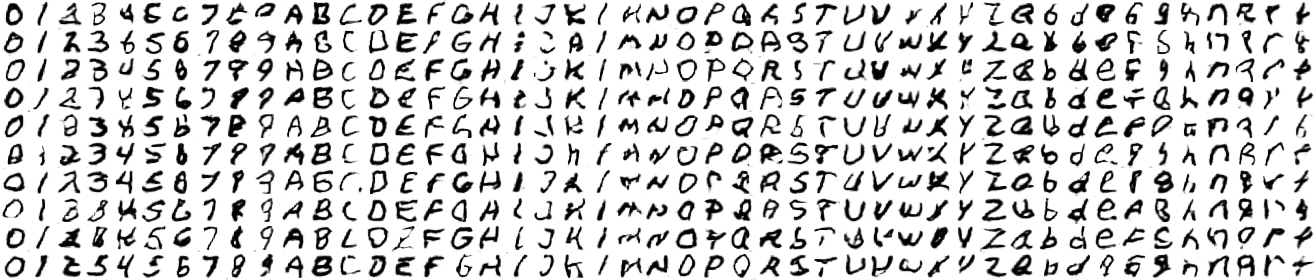 0 1 2 3 4 5 6 7 8 9 A B C D E F G H I J K I M N O P Q R S T U V W X Y Z a b d e 6 9 h n R r t
0 1 2 3 6 5 6 7 8 9 A B C D E F G H I J A I M N O P D A B T U V W X Y Z a b b e F S h n r t
0 1 2 3 4 5 8 7 9 9 A B C D E F G H I J K I M N O P Q R S T U V V X Y Z a b d e F g h n q r t
0 1 2 7 4 5 6 7 8 9 A B C D E F G H I J K I M N D P Q A S T U U W X Y Z a b d e F Q h n q r t
0 1 8 3 4 5 6 7 8 9 A B C D E F G H I J K I M N O P Q R S T U V W X Y Z a b d e f D n n q r t
0 1 2 3 4 5 8 7 9 9 A B C D E F G H I J h I M N O P D R S T U V W X Y Z a b d e 9 g h n R r t
0 1 2 3 4 5 6 7 8 9 A G C D E F G H I J K I M N O P Q A S T U V W X Y Z a b d e 8 8 h n q r t
0 1 3 8 4 5 6 7 8 9 A B C D E F G H I J K I M N O P Q A S T U V W X Y Z a b d e A B h n q r t
0 1 2 8 4 5 6 7 8 9 A B L D Z F G H I J K I M N O P Q R S T U V W V Y Z a b d e F S h n q r t
0 1 2 5 4 5 6 7 8 9 A B C D E F G H I J K I M N O P Q R S T U V W X Y Z a b d e F g h n q r t